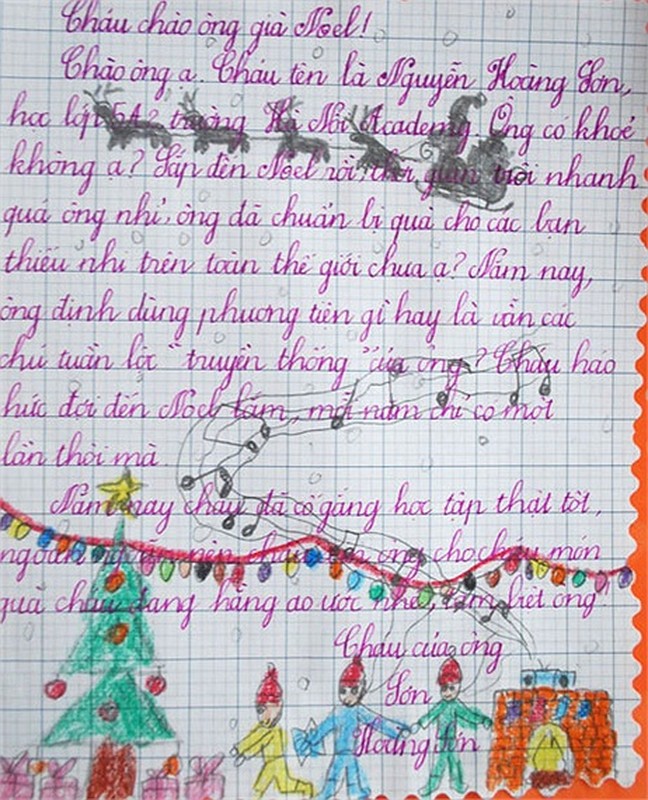 Cháu chào ông già Noel!
Chào ông ạ. Cháu tên là Nguyễn Hoàng Sơn,
học lớp 5A2 trường Hà Nội Academy. Ông có khoẻ
không ạ? Sắp đến Noel rồi, thời gian trôi nhanh
quá ông nhỉ, ông đã chuẩn bị quà cho các bạn
thiếu nhi trên toàn thế giới chưa ạ? Năm nay,
ông định dùng phương tiện gì hay là vẫn các
chú tuần lộc "truyền thống" của ông? Cháu háo
hức đợi đến Noel lắm, mỗi năm chỉ có một
lần thôi mà.
Năm nay cháu đã cố gắng học tập thật tốt,
ngoan nên cháu ông cho cháu món
quà cháu đang hằng ao ước nhé, tạm biệt ông!
Cháu của ông
Sơn
Hoàng Sơn